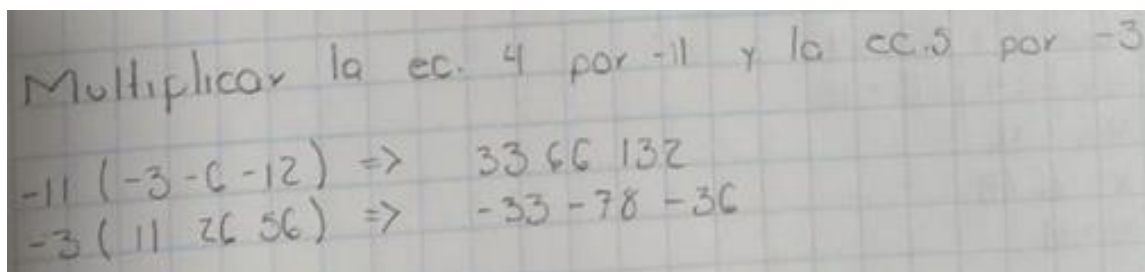 Multiplicar la ec. 4 por -11 y la ec.5 por -3
-11 (-3 -6 -12) => 33 66 132
-3 ( 11 26 56) => -33 -78 -36